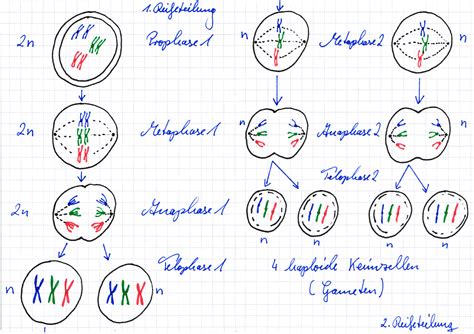 1. Reifeteilung
2n
Prophase 1
2n
Metaphase 1
2n
Anaphase 1
Telophase 1
n
n
n
Metaphase 2
n
n
Anaphase 2
n
Telophase 2
n
n
n
n
4 haploide Keimzellen
(Gameten)
2. Reifeteilung